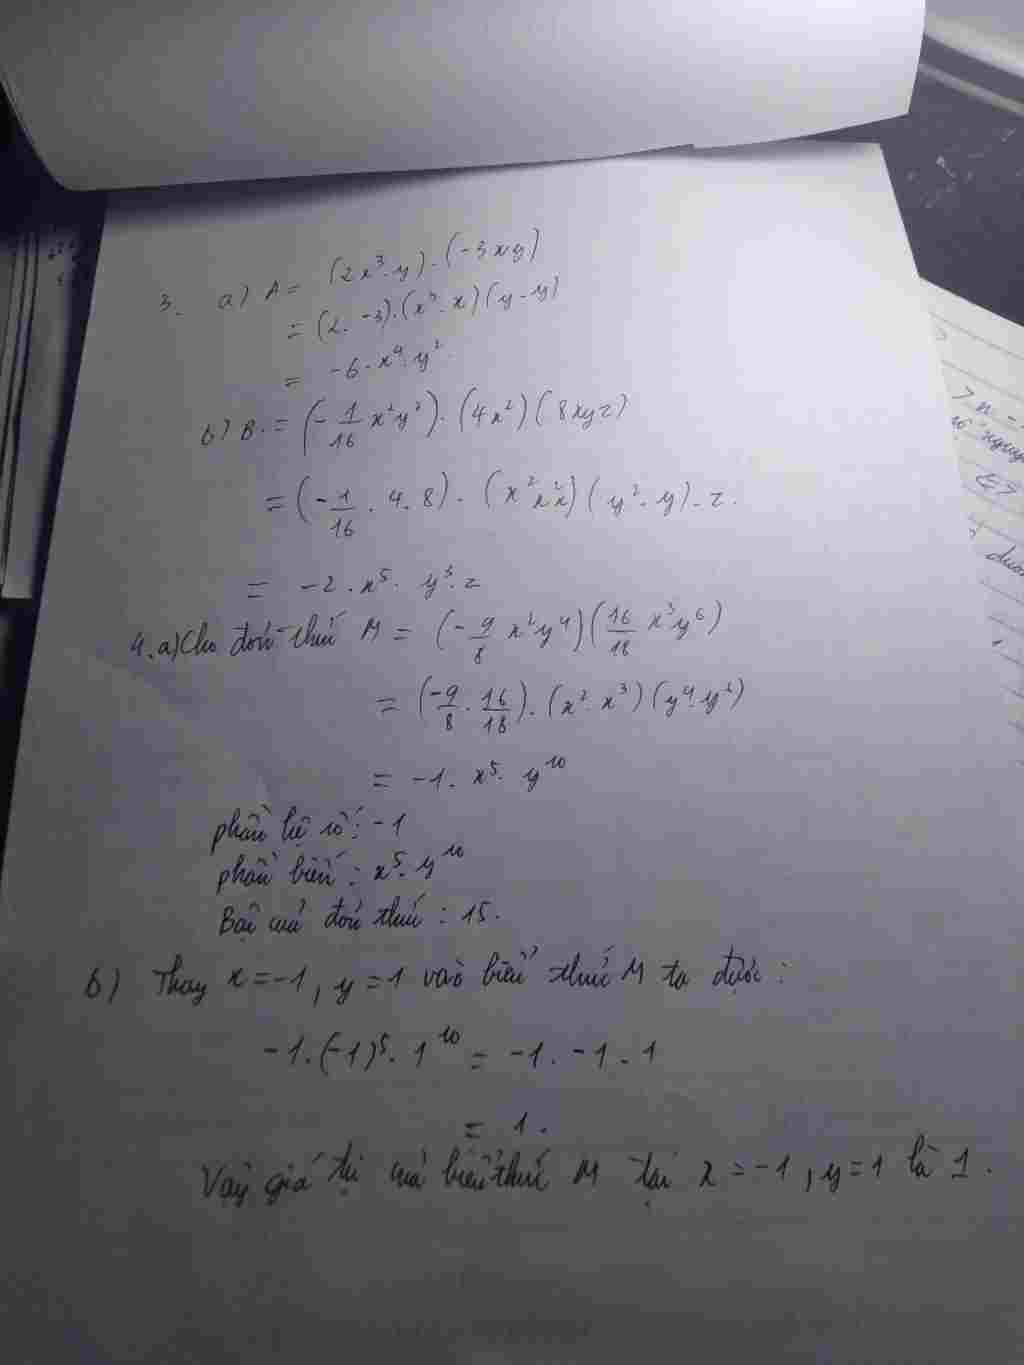 3. a) A = (2x³.y).(-3xy)
= (2.-3).(x³.x)(y.y)
= -6.x⁴.y²
b) B = (-1/16 x²y²).(4x²)(8xyz)
= (-1/16 . 4.8).(x² x² x)(y².y).z.
= -2.x⁵.y³.z
4. a) Cho đơn thức M = (-9/8 x²y⁴)(16/18 x³y⁶)
= (-9/8 . 16/18).(x².x³)(y⁴.y⁶)
= -1.x⁵.y¹⁰
phần hệ số: -1
phần biến: x⁵.y¹⁰
Bậc của đơn thức: 15.
b) Thay x = -1, y = 1 vào biểu thức M ta được:
-1.(-1)⁵.1¹⁰ = -1.-1.1
= 1.
Vậy giá trị của biểu thức M tại x = -1, y = 1 là 1.